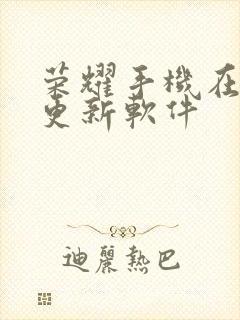 荣耀手機在
更新軟件
迪麗熱巴